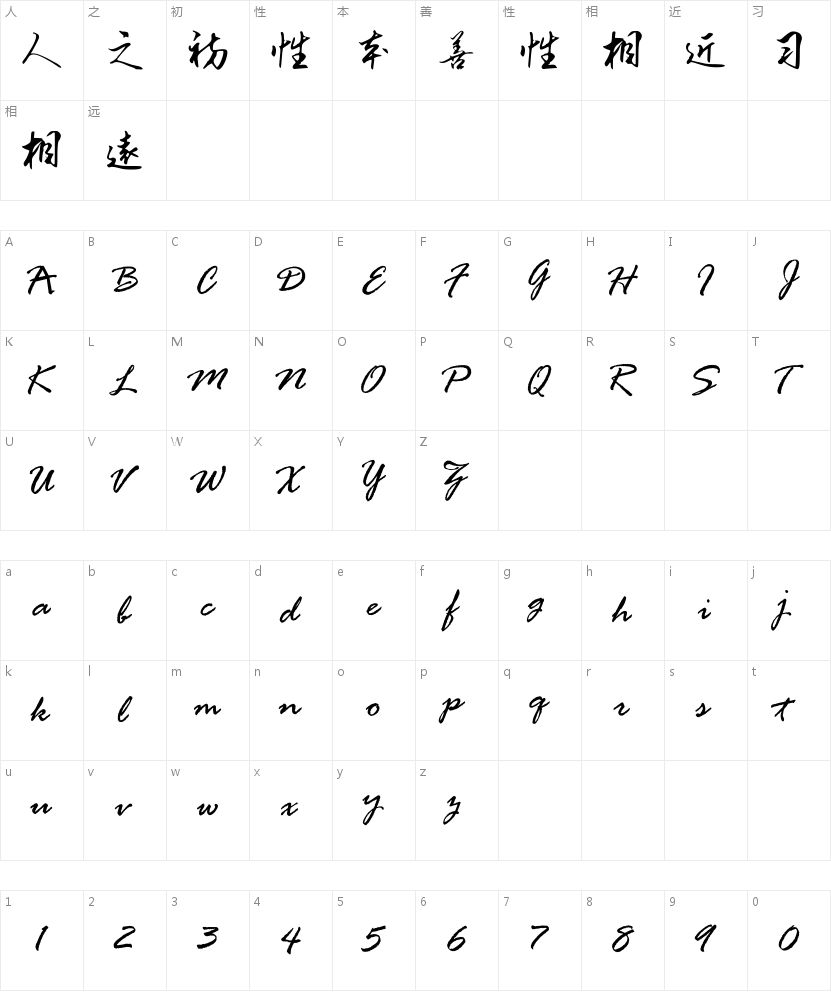 人 之 初 性 本 善 性 相 近 习
人 之 初 性 本 善 性 相 近 习
相 远
相 遠
A B C D E F G H I J
A B C D E F G H I J
K L M N O P Q R S T
K L M N O P Q R S T
U V W X Y Z
U V W X Y Z
a b c d e f g h i j
a b c d e f g h i j
k l m n o p q r s t
k l m n o p q r s t
u v w x y z
u v w x y z
1 2 3 4 5 6 7 8 9 0
1 2 3 4 5 6 7 8 9 0